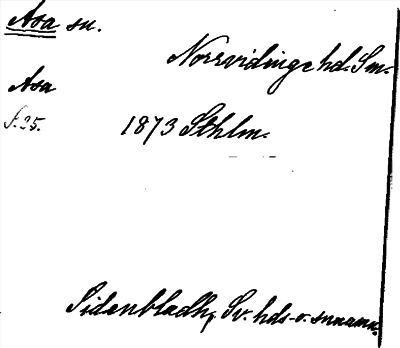 Asa sn.
Norrvidinge hd. Sm.
Asa
s. 25.
1873 Sthlm.
Sidenbladh, Sv. hds- o. snnamn.